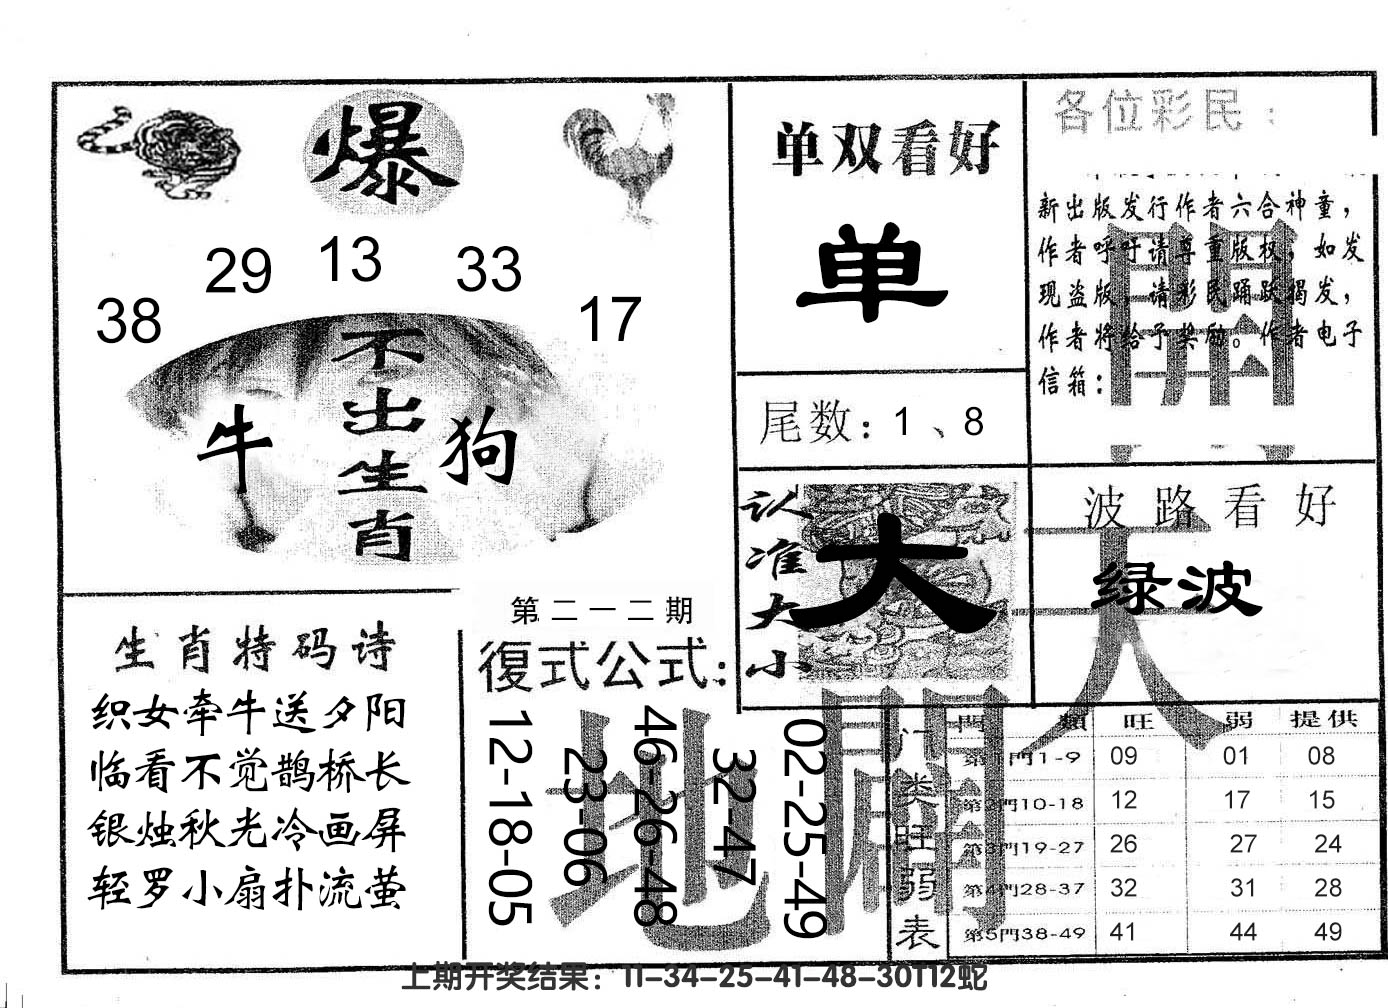 爆
38 29 13 33 17
不出生肖
牛 狗
单双看好
单
尾数：1、8
认准大小
大
各位彩民：
新出版发行作者六合神童，
作者呼吁请尊重版权，如发
现盗版，请彩民踊跃揭发，
作者将给予奖励。作者电子
信箱：
開
波路看好
绿波
天
生肖特码诗
织女牵牛送夕阳
临看不觉鹊桥长
银烛秋光冷画屏
轻罗小扇扑流萤
第二一二期
復式公式：
12-18-05
23-06
46-26-48
32-47
02-25-49
地
闢
门类旺弱表
門類 旺 弱 提供
第1門1-9 09 01 08
第2門10-18 12 17 15
第3門19-27 26 27 24
第4門28-37 32 31 28
第5門38-49 41 44 49
上期开奖结果：11-34-25-41-48-30T12蛇